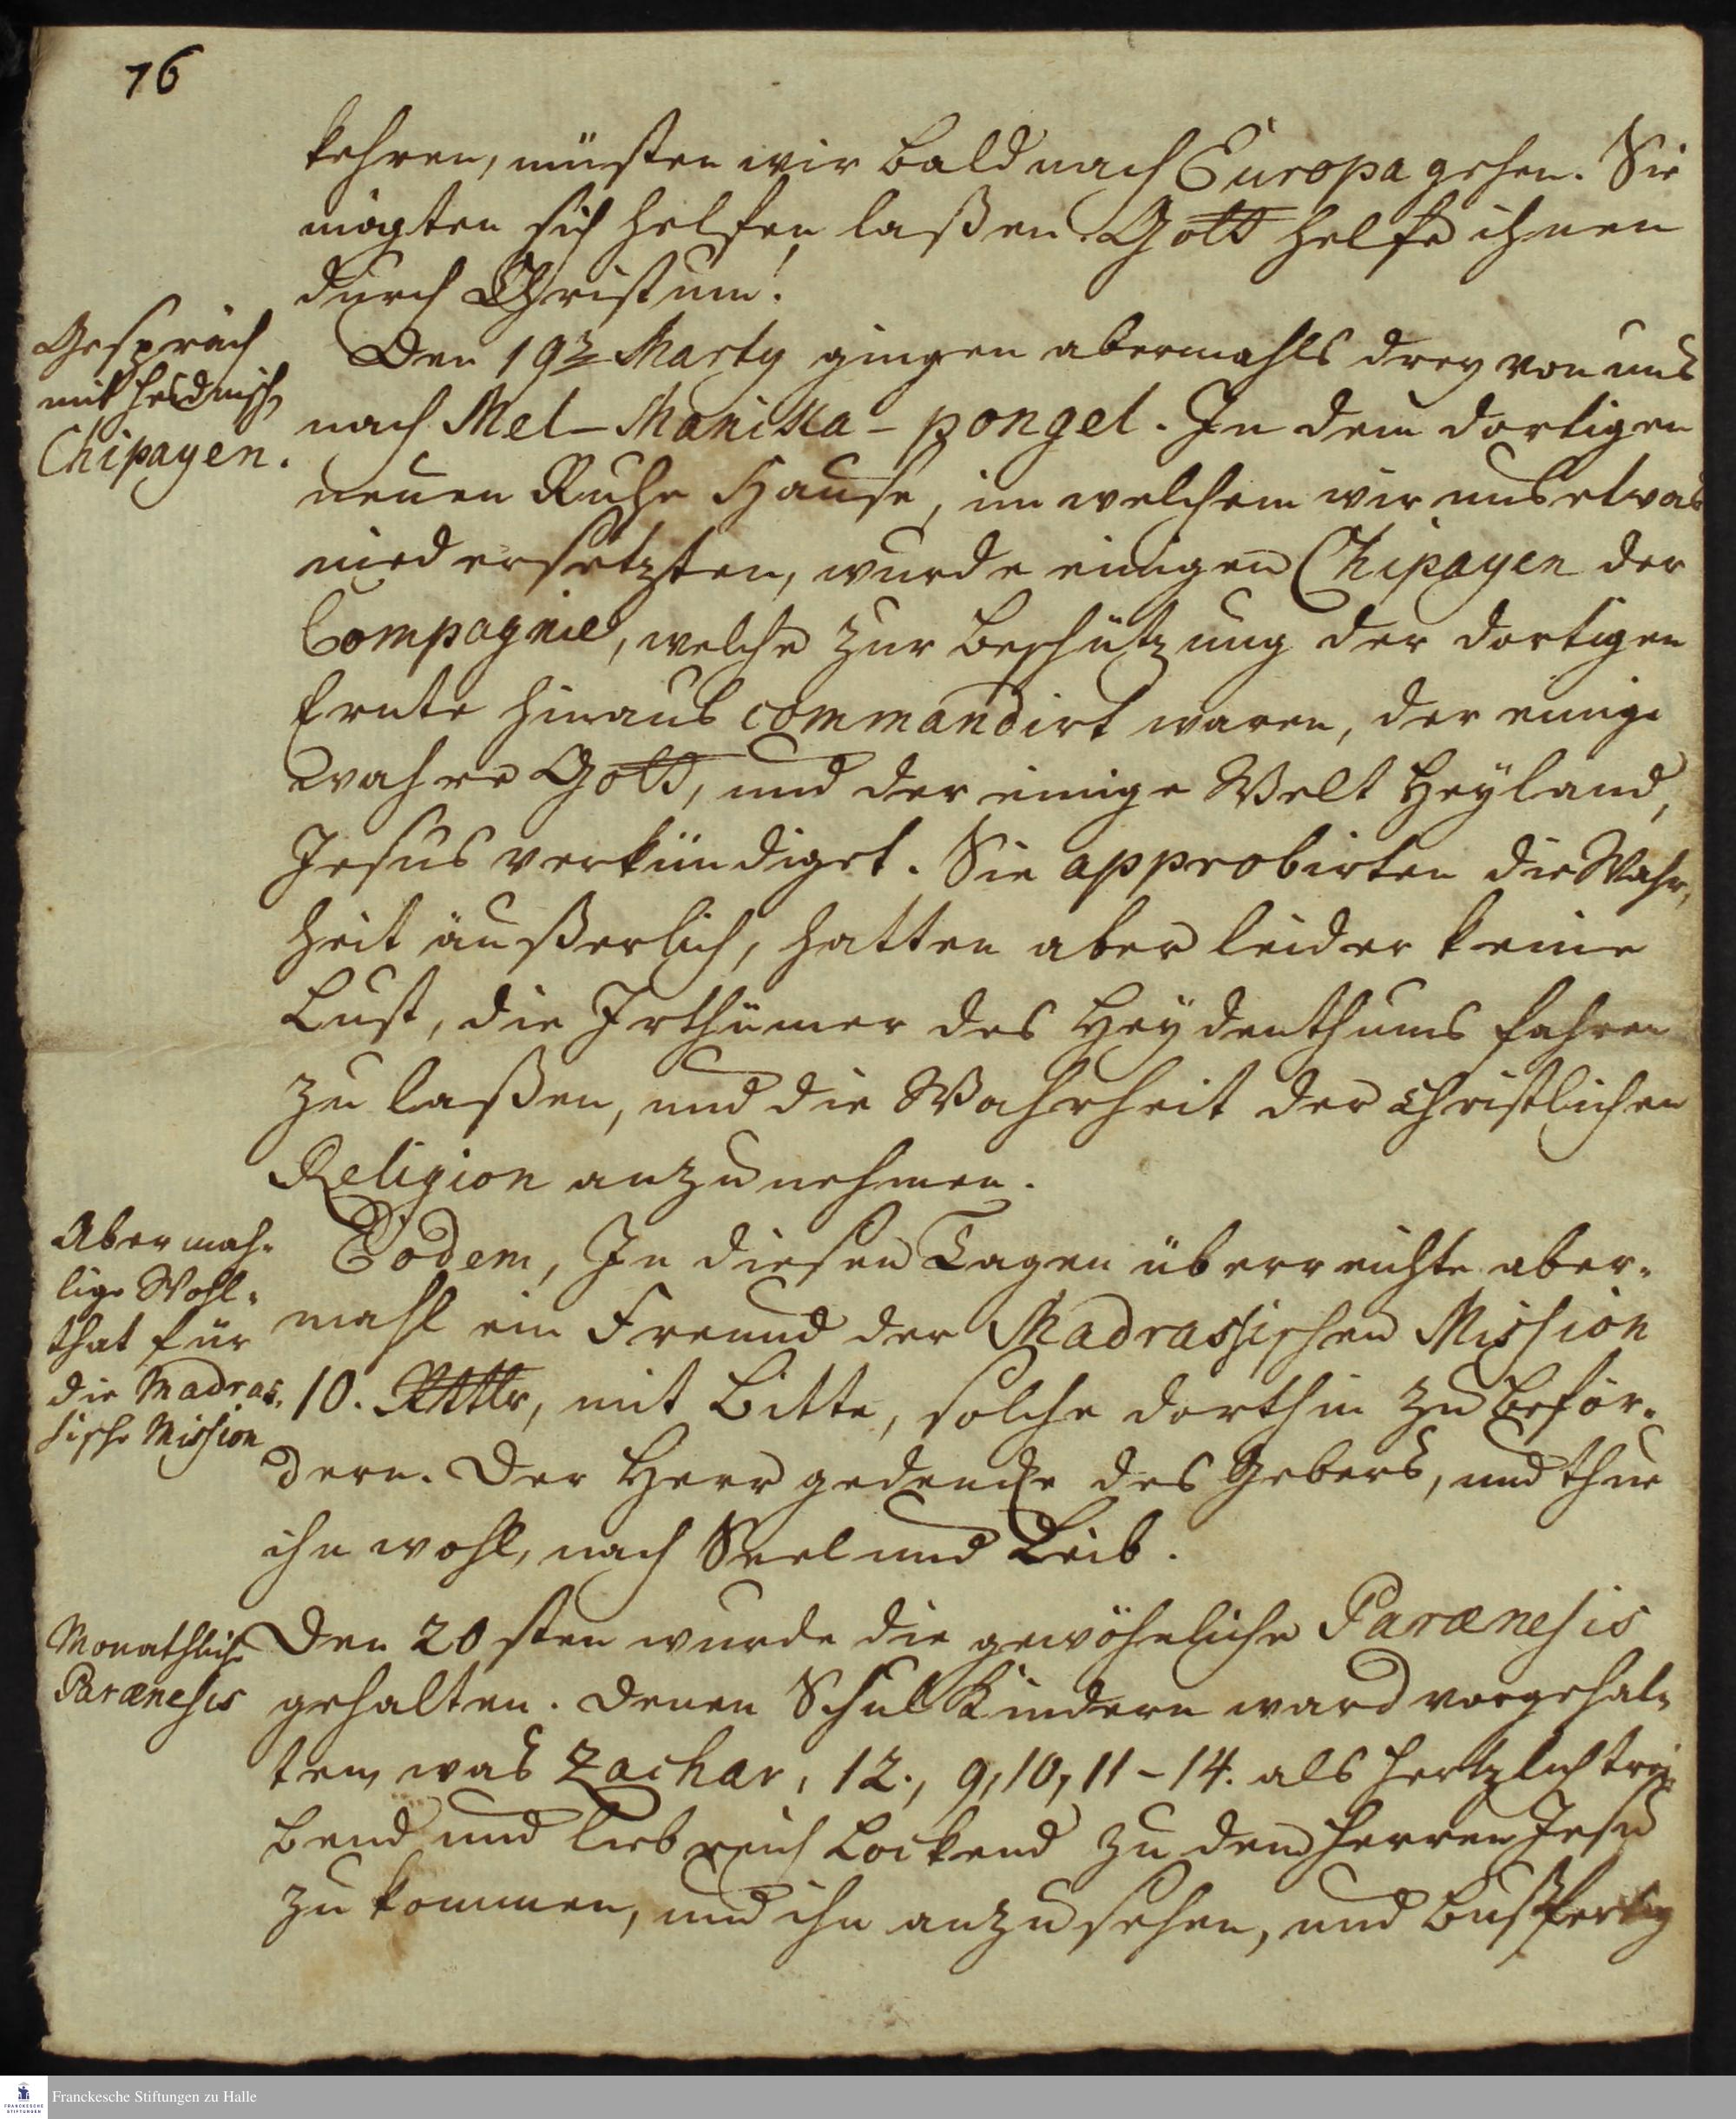 76
kehren, müsten wir bald nach Europa gehen. Sie
mögten sich helfen laßen. Gott helfe ihnen
durch Christum.
Gespräch
mit heidnisch
Chipayen.
Den 19 Marty gingen abermahls drey von uns
nach Mel-Manikka-pongel. In dem dortigen
neuen Ruhe Hause, in welchem wir uns etwas
niedersetzten, wurde einigen Chipayen der
Compagnie, welche zur Beschützung der dortigen
Ernte hinaus commandirt waren, der einige
wahre Gott, und der einige Welt Heyland,
Jesus verkündiget. Sie approbirten die Wahr,
heit äußerlich, hatten aber leider keine
Lust, die Irthümer des Heydenthums fahren
zu laßen, und die Wahrheit der christlichen
Religion anzunehmen.
Abermah-
lige Wohl-
that für
die Madras,
sische Mission
Eodem, In diesen Tagen überreichte aber-
mahl ein Freund der Madrassischen Mission
10. Rthlr, mit Bitte, solche dorthin zu beför-
dern. Der Herr gedencke des Gebers, und thue
ihn wohl, nach Seel und Leib.
Monathliche
Parænesis
Den 20sten wurde die gewöhnliche Parænesis
gehalten. Denen Schul Kindern ward vorgehal-
ten, was Zachar, 12., 9, 10, 11-14. als hertzlich trei-
bend und liebreich Lockend zu dem Herren Jesu
zu kommen, und ihn anzusehen, und bußfertig
Franckesche Stiftungen zu Halle
FRANCKESCHE
STIFTUNGEN